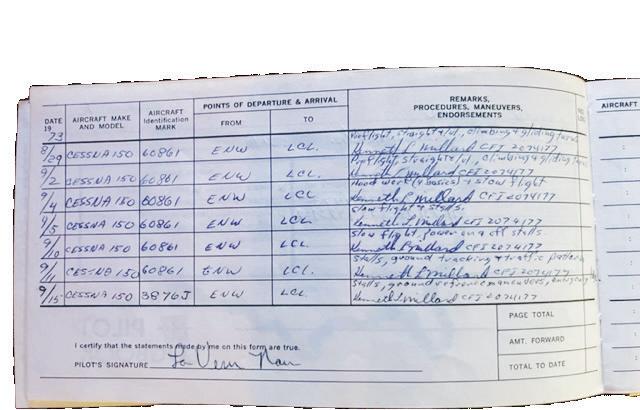 DATE 19 73 AIRCRAFT MAKE AND MODEL AIRCRAFT Identification MARK POINTS OF DEPARTURE & ARRIVAL FROM TO REMARKS, PROCEDURES, MANEUVERS, ENDORSEMENTS AIRCRAFT
Preflight, straight & lvl, climbing & gliding turns
8/29 CESSNA 150 60861 ENW LCL. Kenneth L Millard CFI 2074177
Preflight, straight & lvl, climbing & gliding turns
9/2 CESSNA 150 60861 ENW LCL. Kenneth L Millard CFI 2074177
Hood work (4 basics) & slow flight
9/4 CESSNA 150 60861 ENW LCL Kenneth L Millard CFI 2074177
Slow flight & stalls.
9/5 CESSNA 150 60861 ENW LCL. Kenneth L Millard CFI 2074177
Slow flight, power on & off stalls.
9/10 CESSNA 150 60861 ENW LCL. Kenneth L Millard CFI 2074177
Stalls, ground tracking & traffic pattern
9/11 CESSNA 150 60861 ENW LCL. Kenneth L Millard CFI 2074177
Stalls, ground reference maneuvers, emergency
9/15 CESSNA 150 3876J ENW LCL Kenneth L Millard CFI 2074177
PAGE TOTAL
I certify that the statements made by me on this form are true.
AMT. FORWARD
PILOT'S SIGNATURE La Vern
TOTAL TO DATE